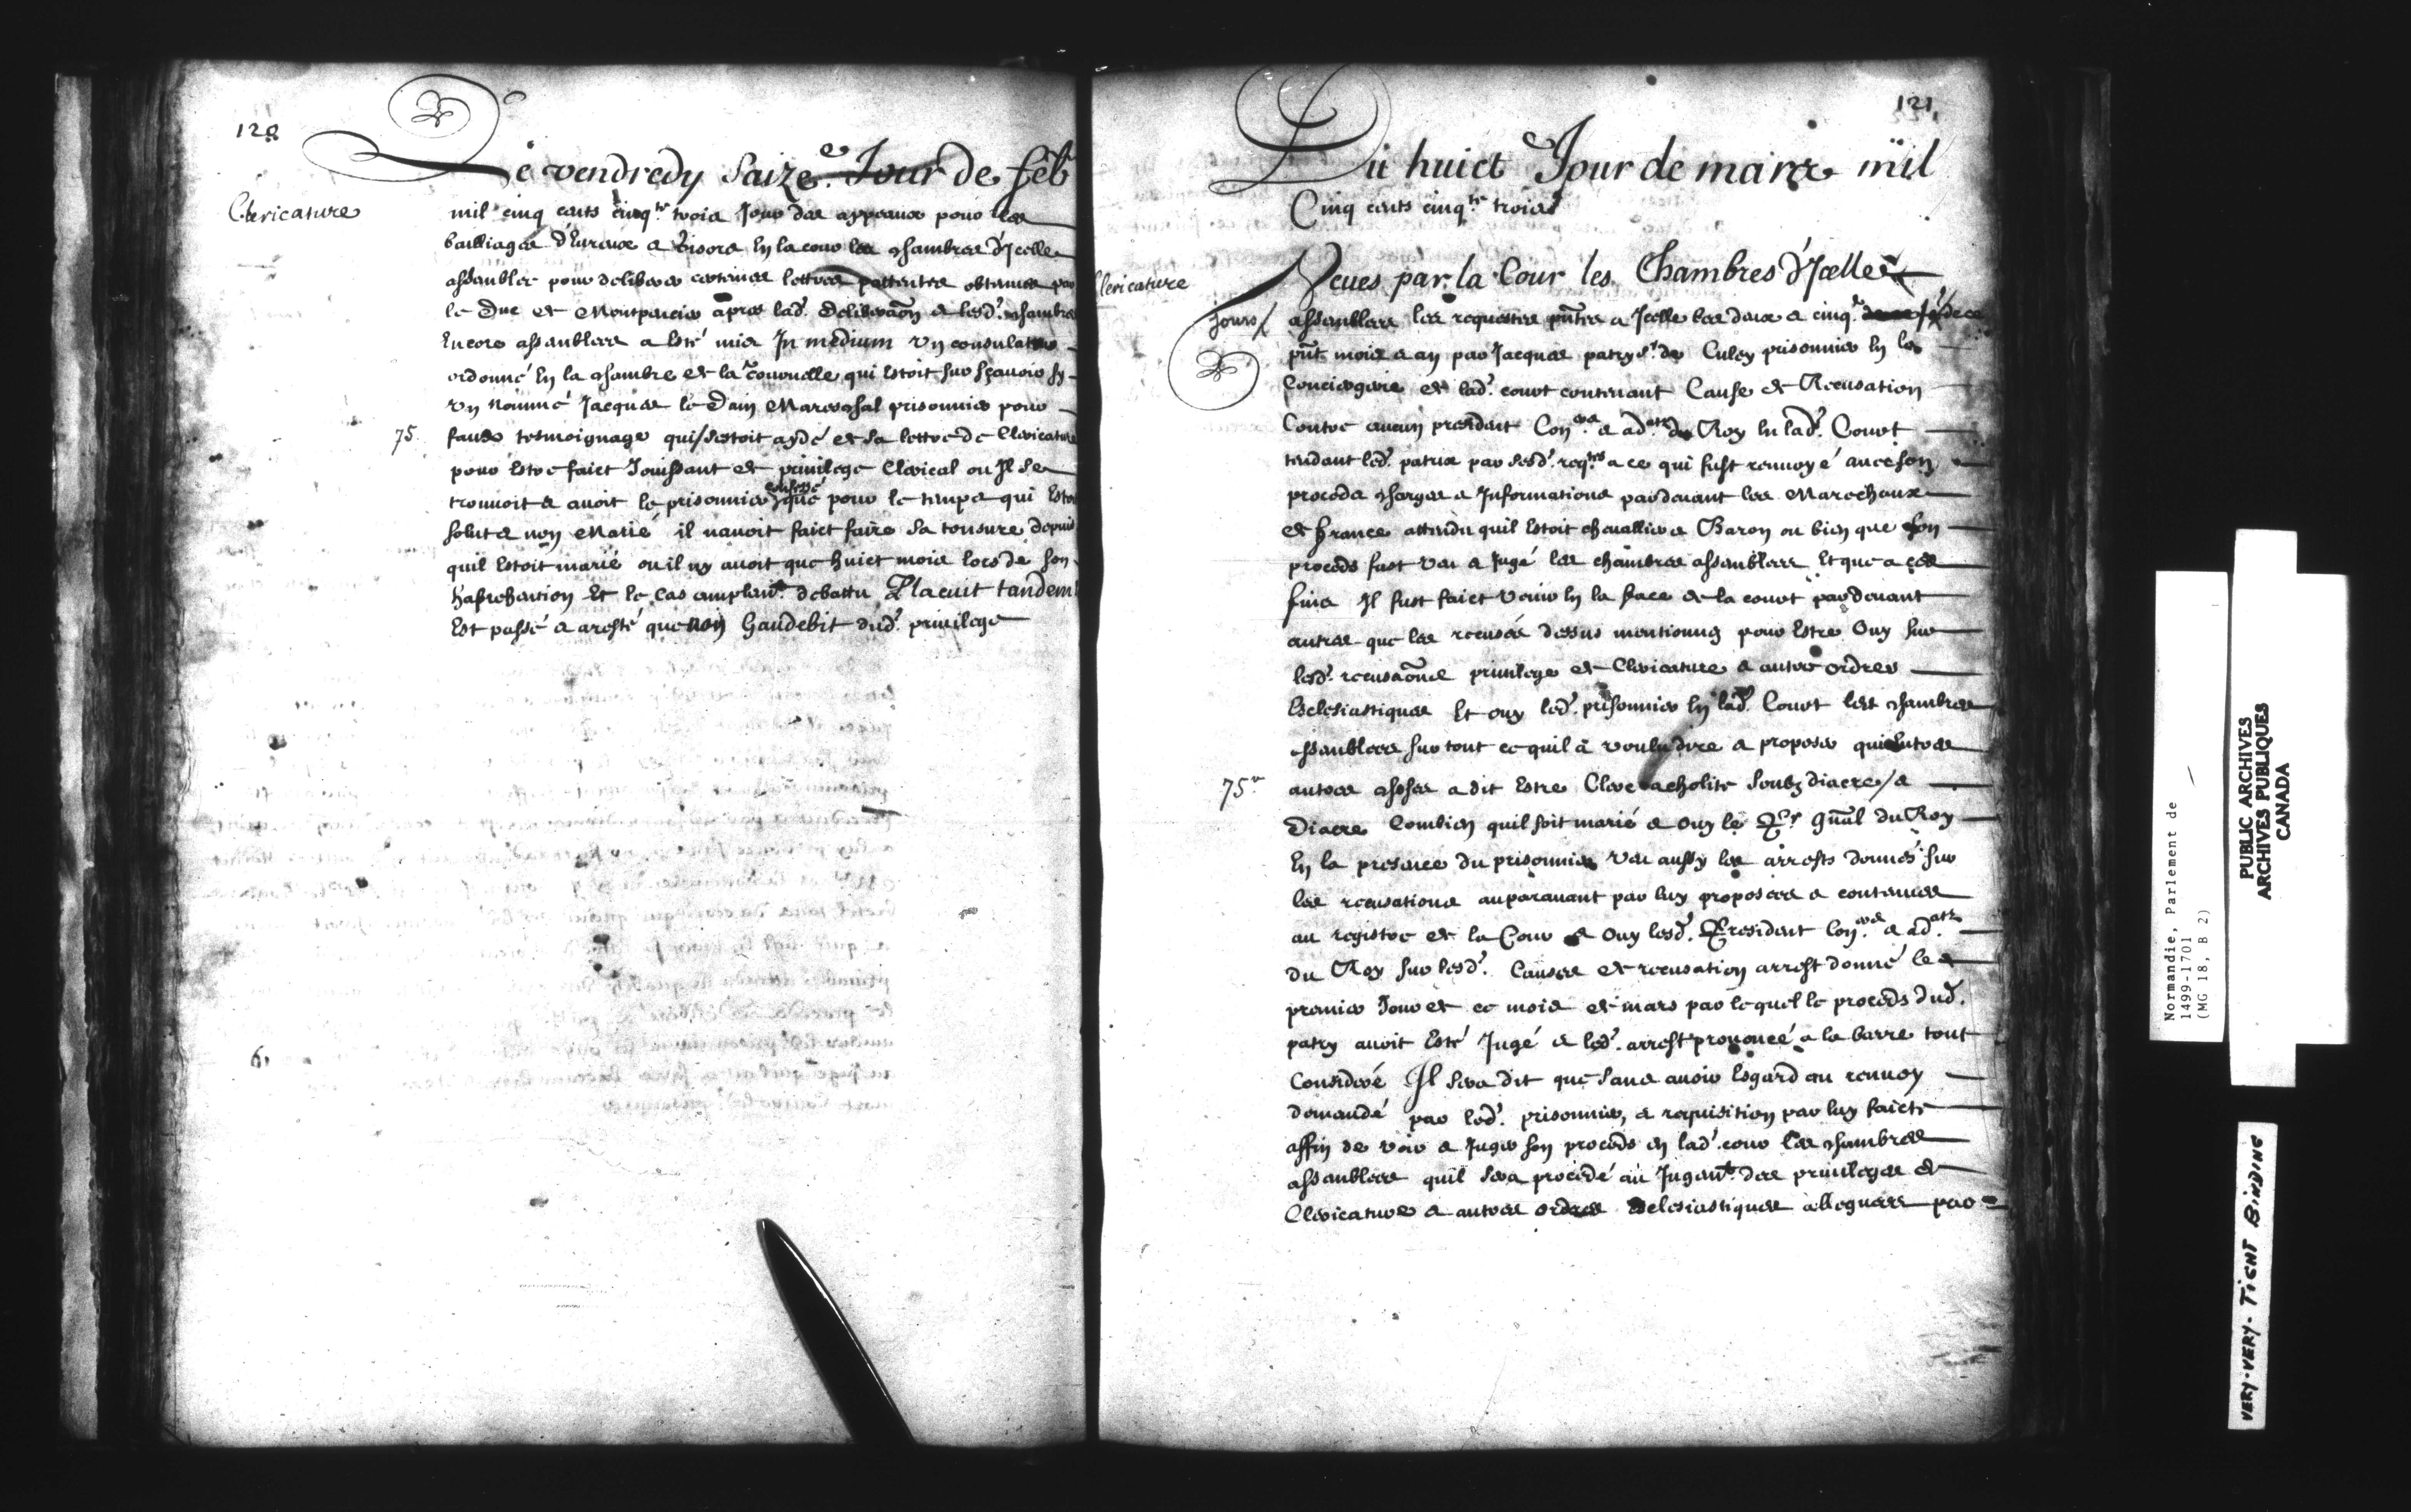 120
Le vendredy Saize.e Jour de feb
Clericature
mil cinq cents cinq.te trois Jour des appeaux pour les
bailliages d'Eureux & Gisors en la cour les chambres d'Jcelle
assembleé pour deliberer certaines lettres pattentes obtenues par
le Duc de Montpencier apres lad. deliberaon & lesd. chambres
Encore assemblees a Esté mis In medium un consulat
ordonné en la chambre de la Tournelle qui Estoit sur sçauoir sy
un nommé Jacques le Dain Mareschal prisonnier pour
75. faux tesmoignage qui sestoit aydé de sa lettre de Clericature
pour Estre faict Jouissant de priuilege Clerical ou Il se
trouuoit & auoit le prisonnier confessé que pour le temps qui Estoit
solut & non Marié il nauoit faict faire sa tonsure depuis
quil Estoit marié ou il ny auoit que huict mois lors de son
hapréhention Et le cas amplem.t debattu Placuit tandem
Est passé & aresté que non Gaudebit dud. priuilege
6,
121,
Du huict Jour de mars mil
Cinq cents cinq.te trois
Clericature
Veues par la Cour les Chambres d'Jcelle
Jours
assemblees les requestes pntes a Jcelle les deux & cinq.e de ce
pnt mois & an par Jacques patry s.r de Culey prisonnier en la
Conciergerie de lad. court contenant Cause de Recusation
Contre aucun president Con.ers & ad.ats du Roy en lad. Court
tendant led. patrix par sesd. req.tes a ce qui fust renuoyé auec son
proceds charges & Informations pardeuant les Marechaux
de france attendu quil Estoit cheuallier & Baron ou bien que son
proceds fust veu & Jugé les chambres assemblees Et que a ces
fins Il fust faict venir en la face de la court pardeuant
autres que les recusés dessus mentionnez pour Estre Ouy sur
lesd. recusaons priuilege de Clericature & autres ordres
Eclesiastiques Et ouy led. prisonnier en lad. Court les chambres
assemblees sur tout ce quil à voulu dire & proposer qui entre
75v autres choses a dit Estre Clerc acholite soubz diacre / &
Diacre Combien quil soit marié & Ouy le P.r gnãl du Roy
En la presence du prisonnier veu aussy les arrests donnés sur
les recusations auparauant par luy proposees & contenues
au registre de la Cour & Ouy lesd. President Con.ers & ad.atz
du Roy sur lesd. Causes de recusation arrest donné le
premier Jour de ce mois de mars par lequel le proceds dud.
patry auoit Esté Jugé & led. arrest prononcé a la barre tout
Consideré Il sera dit que sans auoir Esgard au renuoy
demandé par led. prisonnier, & requisition par luy faicte
affin de voir & Juger son proceds en lad. cour les chambres
assemblees quil sera procédé au Jugem.t des priuileges de
Clericature & autres ordres Eclesiastiques alleguees par
Normandie, Parlement de
1499-1701
(MG 18, B 2)
PUBLIC ARCHIVES
ARCHIVES PUBLIQUES
CANADA
VERY-VERY-TIGHT BINDING